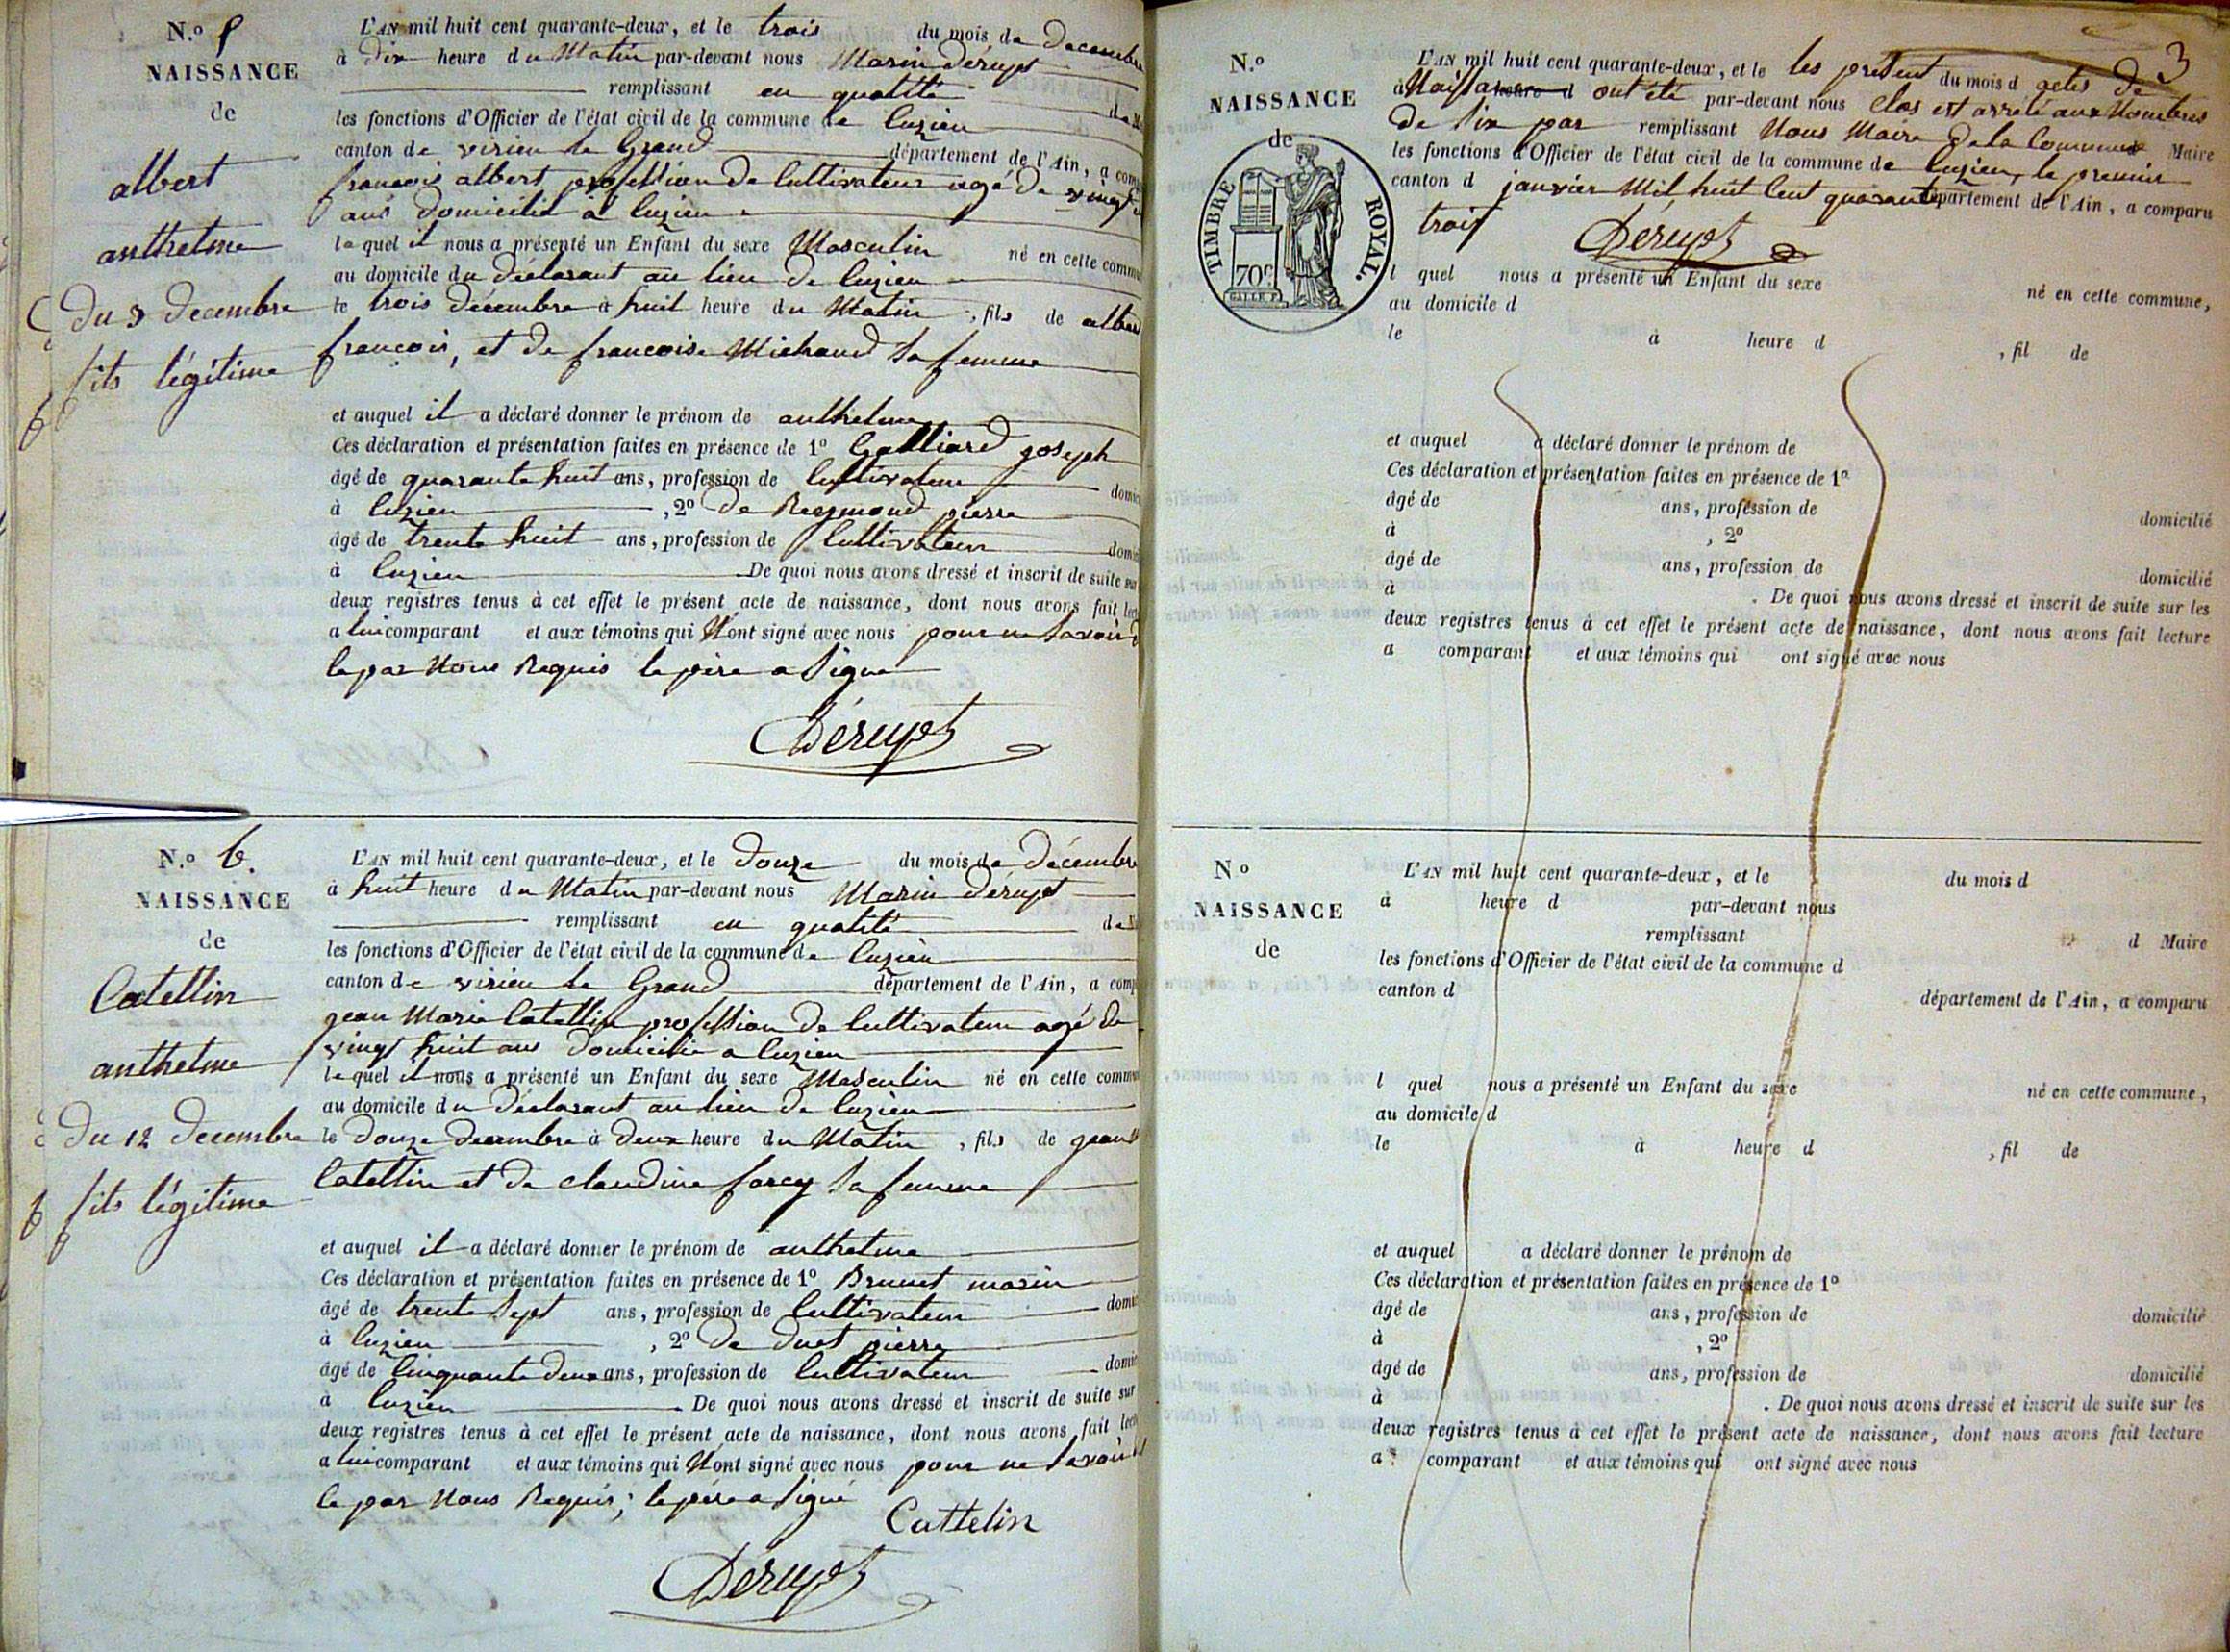 N.o 5
NAISSANCE
de
albert
anthelme
du 3 decembre
fils légitime
L'AN mil huit cent quarante-deux, et le trois du mois de Decembre
à dix heure du Matin par-devant nous Marin Dérupt
remplissant en qualité de
les fonctions d'Officier de l'état civil de la commune de luzieu
canton de virieu le Grand département de l'Ain, a com
francois albert profession de Cultivateur agé de vingt
ans domicilié a luzieu
lequel il nous a présenté un Enfant du sexe Masculin né en cette commu
au domicile du déclarant au lieu de luzieu
le trois décembre à huit heure du Matin, fils de albert
francois, et de francoise Michaud Sa femme
et auquel il a déclaré donner le prénom de anthelme
Ces déclaration et présentation faites en présence de 1º Galliard joseph
âgé de quarante huit ans, profession de Cultivateur domici
à luzieu, 2º de Reymond pierre
âgé de trente huit ans, profession de Cultivateur domi
à luzieu De quoi nous avons dressé et inscrit de suite sur
deux registres tenus à cet effet le présent acte de naissance, dont nous avons fait lect
a lui comparant et aux témoins qui N'ont signé avec nous pour ne Savoir
le par Nous Requis le père a Signé
Dérupt
N.o 6.
NAISSANCE
de
Catellin
anthelme
du 12 decembre
fils légitime
L'AN mil huit cent quarante-deux, et le douze du mois de décembre
à huit heure du Matin par-devant nous Marin Dérupt
remplissant en qualité de
les fonctions d'Officier de l'état civil de la commune de luzieu
canton de virieu le Grand département de l'Ain, a comp
jean Marie Catellin profession de Cultivateur agé de
vingt huit ans domicilié a luzieu
lequel il nous a présenté un Enfant du sexe Masculin né en cette commu
au domicile du déclarant au lieu de luzieu
le douze decembre à deux heure du Matin, fils de jean
Catellin et de claudine forey Sa femme
et auquel il a déclaré donner le prénom de anthelme
Ces déclaration et présentation faites en présence de 1º Brunet marin
âgé de trente Sept ans, profession de Cultivateur domi
à luzieu, 2º de duet pierre
âgé de Cinquante deux ans, profession de Cultivateur domic
à luzieu. De quoi nous avons dressé et inscrit de suite sur
deux registres tenus à cet effet le présent acte de naissance, dont nous avons fait lect
a lui comparant et aux témoins qui N'ont signé avec nous pour ne Savoir
le par Nous Requis; le pere a Signé
Cattelin
Dérupt
3
N.o
NAISSANCE
de
TIMBRE ROYAL.
70c.
L'AN mil huit cent quarante-deux, et le les présent du mois d actes de
à Naissance heure d ont été par-devant nous Clos et arrêté aux Nombres
De Six par remplissant Nous Maire de la Commune Maire
les fonctions d'Officier de l'état civil de la commune de luzieu, le premier
canton d janvier Mil huit Cent quarante département de l'Ain, a comparu
trois
Dérupt
l quel nous a présenté un Enfant du sexe né en cette commune,
au domicile d
le à heure d, fil de
et auquel a déclaré donner le prénom de
Ces déclaration et présentation faites en présence de 1º
âgé de ans, profession de domicilié
à, 2º
âgé de ans, profession de domicilié
à. De quoi nous avons dressé et inscrit de suite sur les
deux registres tenus à cet effet le présent acte de naissance, dont nous avons fait lecture
a comparant et aux témoins qui ont signé avec nous
N.o
NAISSANCE
de
L'AN mil huit cent quarante-deux, et le du mois d
à heure d par-devant nous
remplissant d Maire
les fonctions d'Officier de l'état civil de la commune d
canton d département de l'Ain, a comparu
l quel nous a présenté un Enfant du sexe né en cette commune,
au domicile d
le à heure d, fil de
et auquel a déclaré donner le prénom de
Ces déclaration et présentation faites en présence de 1º
âgé de ans, profession de domicilié
à, 2º
âgé de ans, profession de domicilié
à. De quoi nous avons dressé et inscrit de suite sur les
deux registres tenus à cet effet le présent acte de naissance, dont nous avons fait lecture
a comparant et aux témoins qui ont signé avec nous